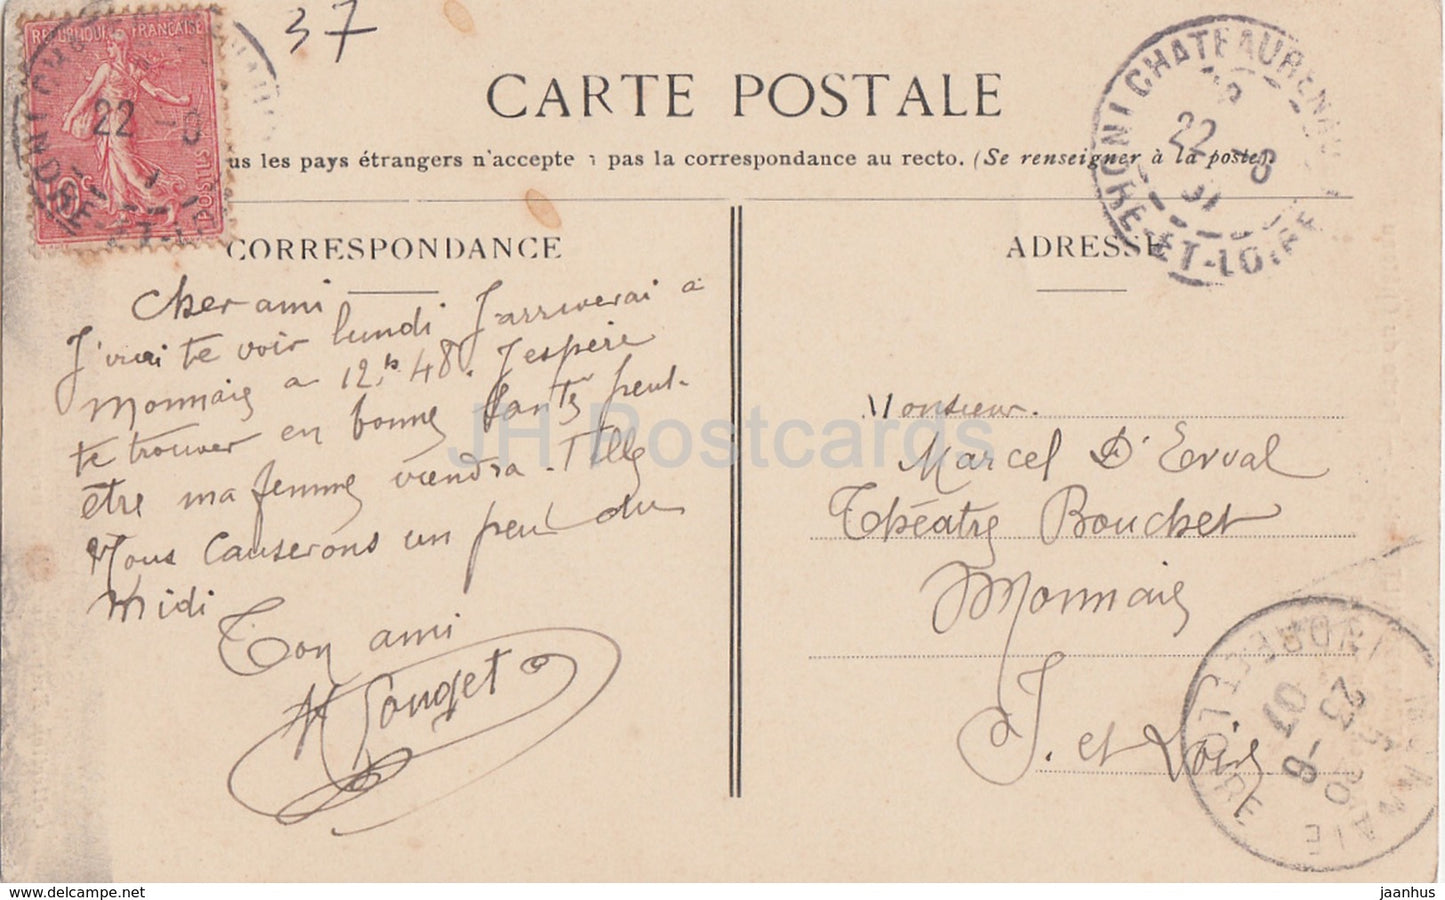 37
REPUBLIQUE FRANÇAISE
POSTES
10c
22
CARTE POSTALE
CHATEAURENAU
22 -6
INDRE-ET-LOIRE
us les pays étrangers n'accepte pas la correspondance au recto. (Se renseigner à la poste).
CORRESPONDANCE
ADRESSE
Cher ami
J'irai te voir lundi J'arriverai a
Monnaie a 12h 48. J'espère
te trouver en bonne Santé peut-
être ma femme viendra. Elle
Nous causerons un peu du
Midi
Ton ami
Monsieur.
Marcel D'Erval
Théatre Bouchet
Monnaie
I. et Loire
MONNAIE
INDRE-ET-LOIRE
23 -6
07
JH Postcards
www.delcampe.net
jaanhus